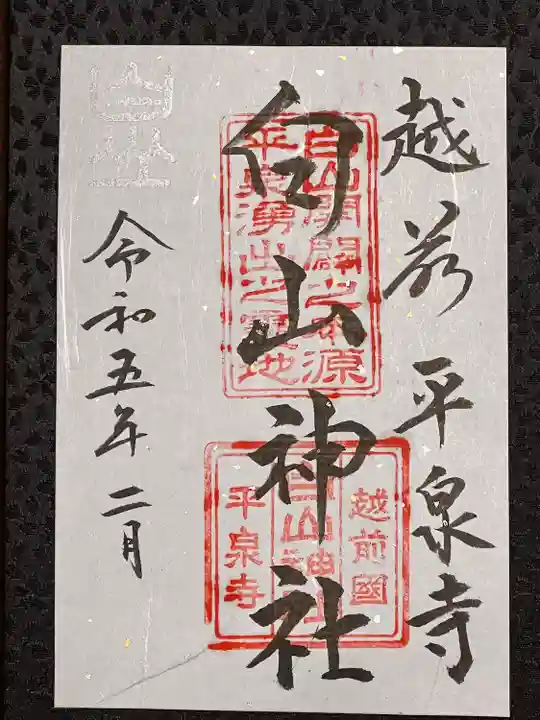 越前 平泉寺
白山神社
令和五年 二月
白山開闢之本源
平泉湧出之霊地
越前國
白山神社
平泉寺